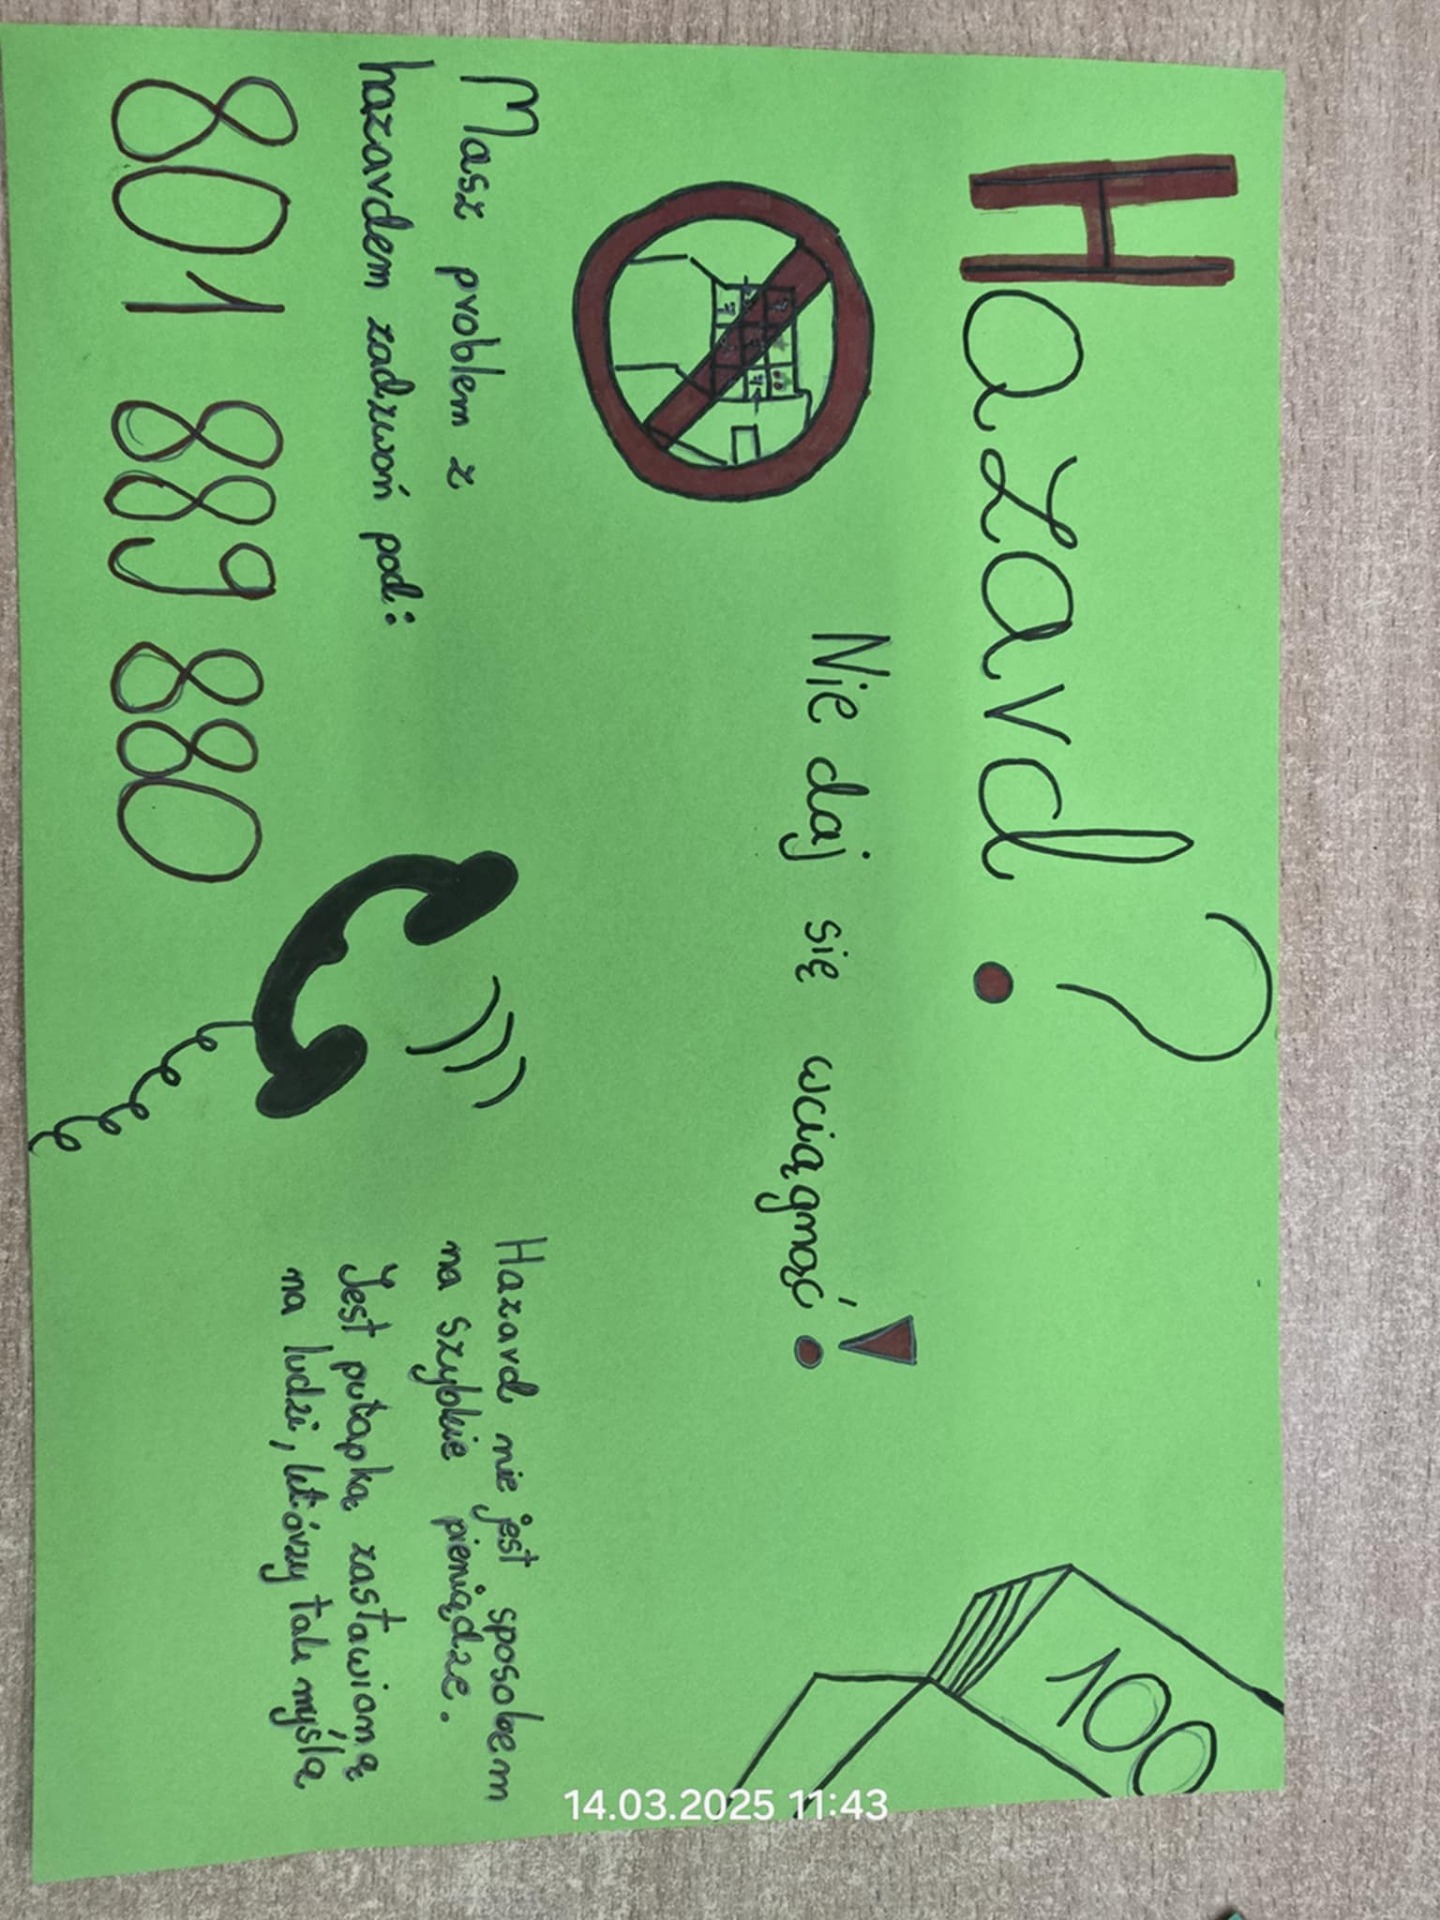 Hazard?
Nie daj się wciągnąć!
Masz problem z
hazardem zadzwoń pod:
801 889 880
Hazard nie jest sposobem
na szybkie pieniądze.
Jest pułapką zastawioną
na ludzi, którzy tak myślą
100
14.03.2025 11:43